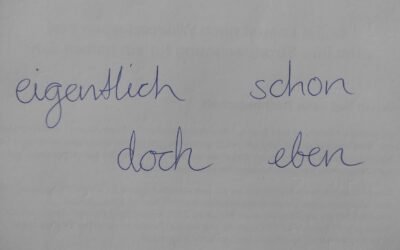 eigentlich schon
doch eben